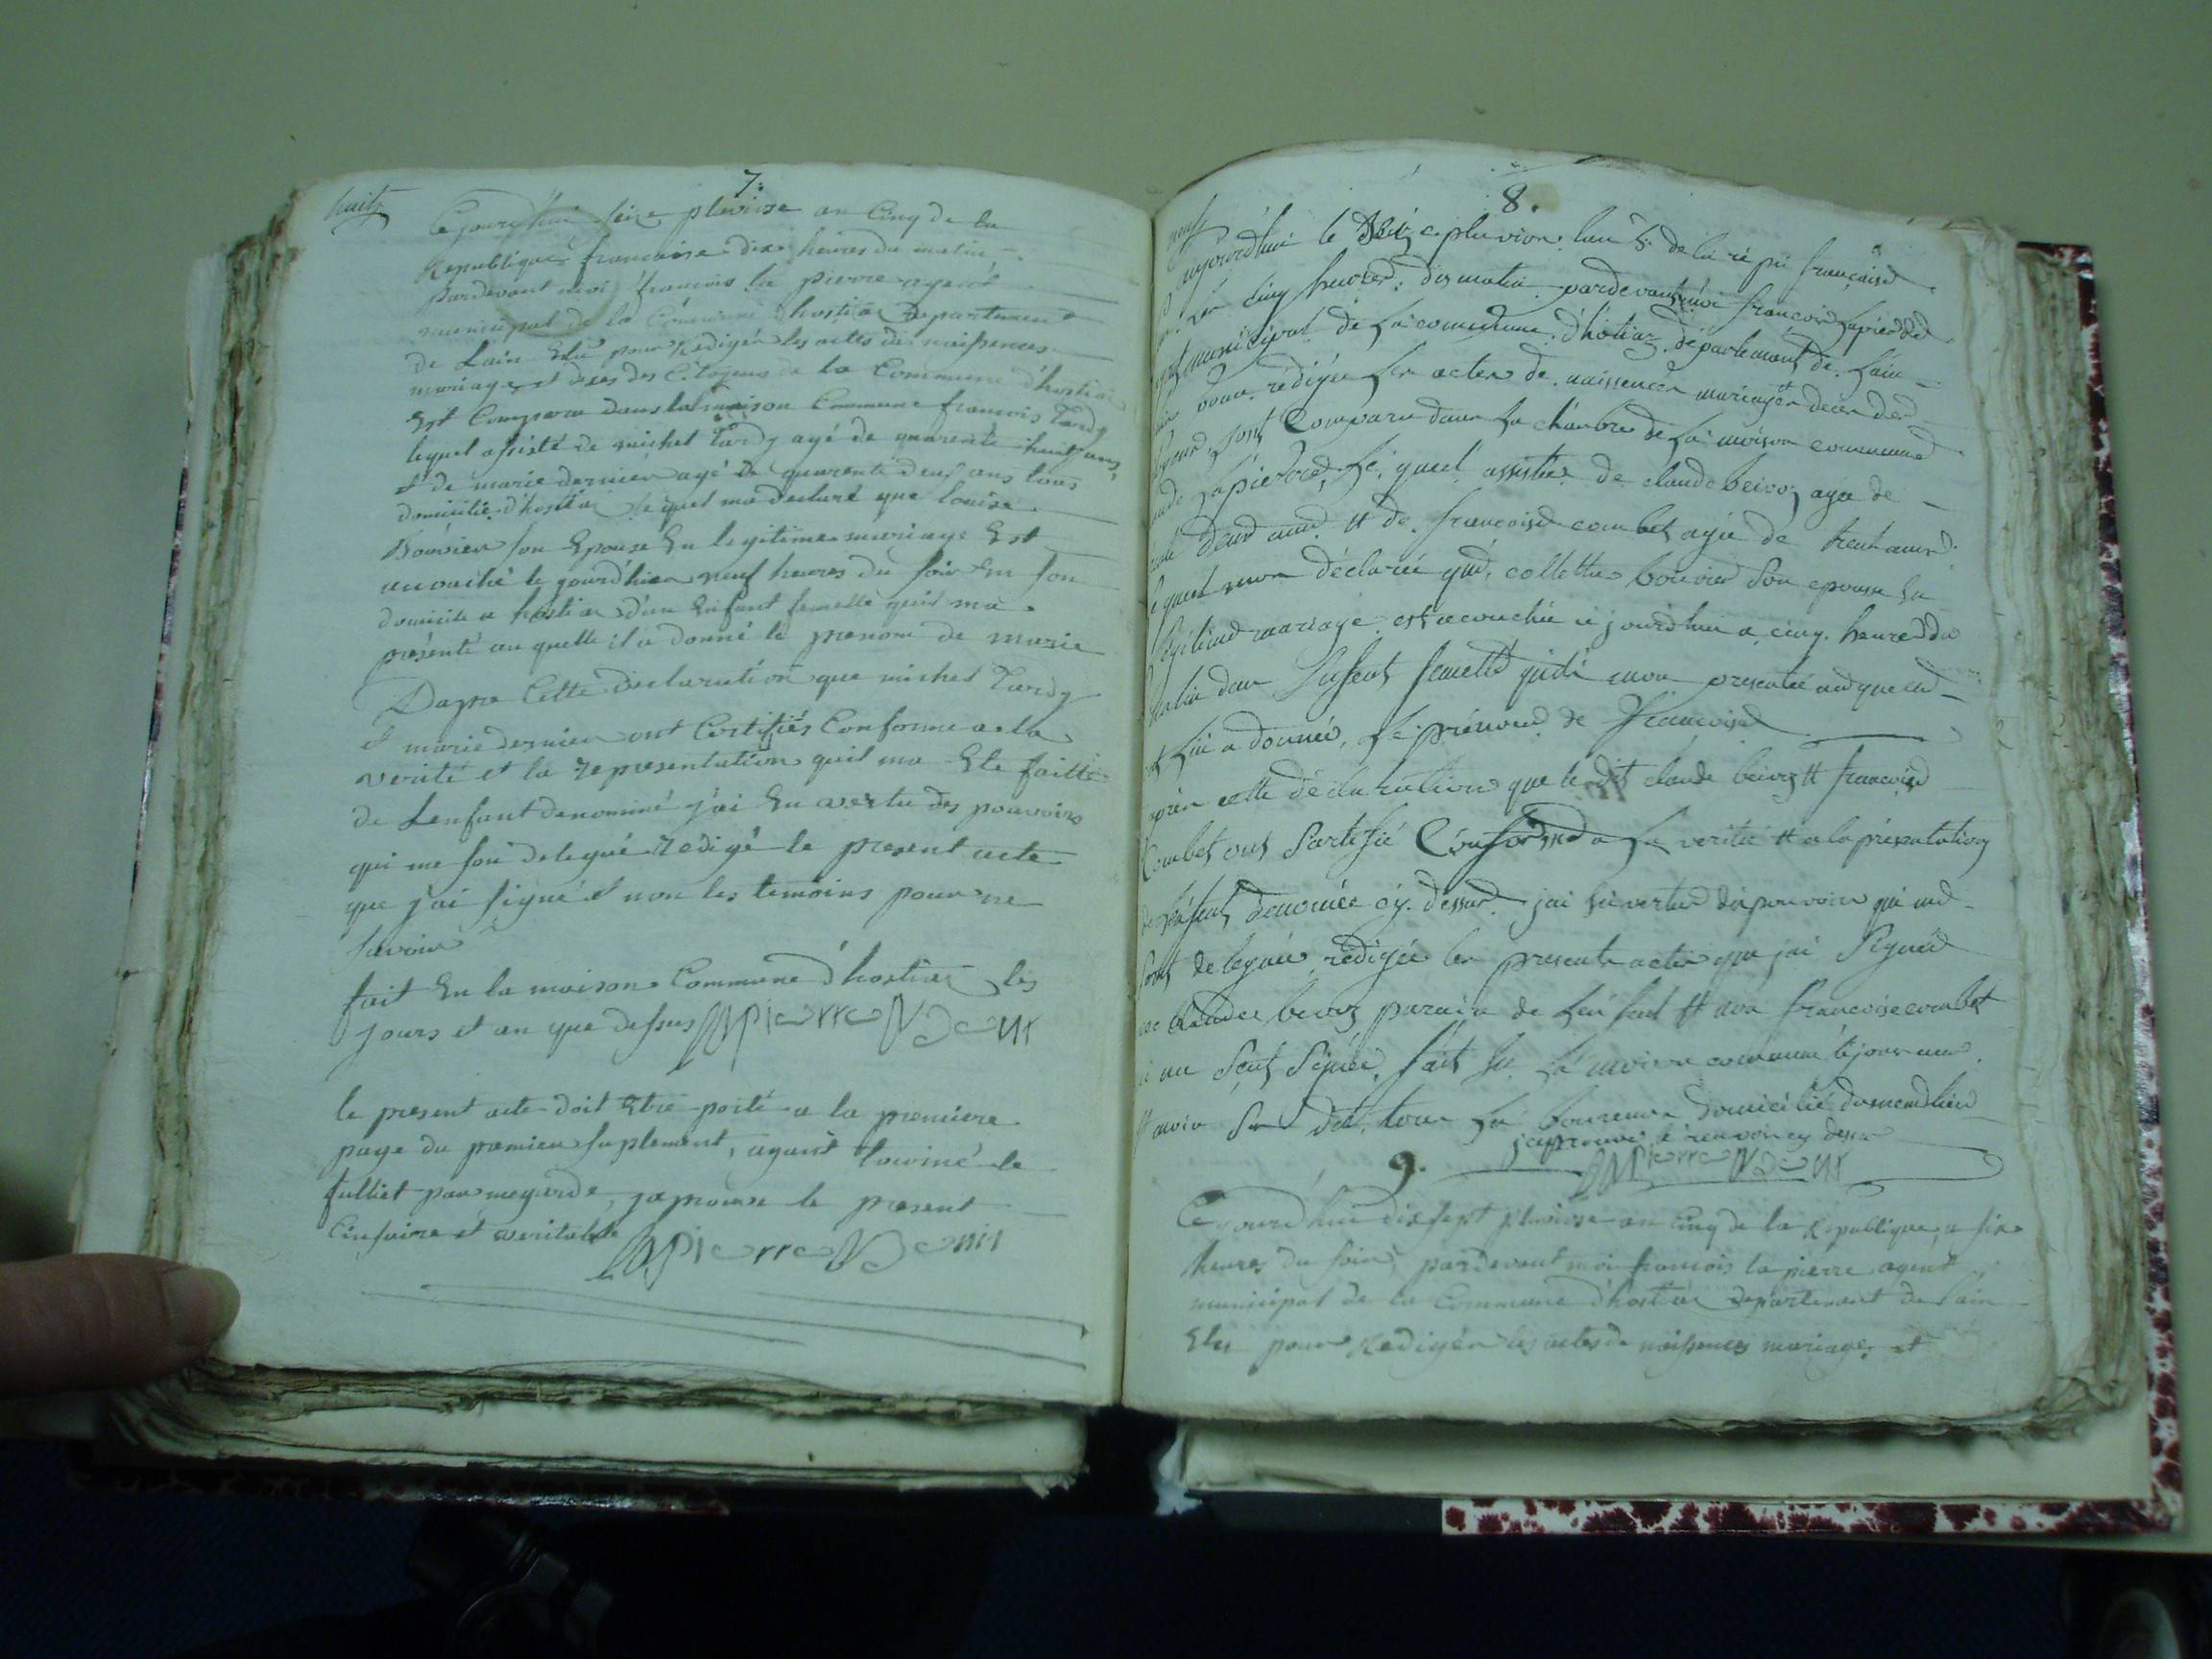 huit
7.
Ce jourd'hui seize pluviose an Cinq de la
Republique francaise dix heures du matin
pardevant moi francois la pierre agent
municipal de la Commune d'hostiaz departement
de Lain Elu pour Redigér les actes de naissences
mariage et deces des Citoyens de la Commune d'hostiaz
Est Comparu dans la maison Commune francois Tardy
lequel assisté de michel Tardy agé de quarente huit ans
et de marie dernier agé de quarente deux ans tous
domicilié d'hostiaz lequel ma declaré que louise
Bouvier son Epouse En legitime mariage Est
accouché le jourd'hier neuf heures du soir En son
domicile a hostiaz d'un Enfant femelle quil ma
présenté au quelle il a donné le prenom de marie
Dapres Cette declaration que michel Tardy
et marie dernier ont Certifiés Conforme a la
verité et la representation quil ma Ete faitte
de Lenfant denommé j'ai En vertu des pouvoirs
qui me son delegué Redigé le present acte
que j'ai signé et non les temoins pour ne
savoir
fait En la maison Commune d'hostiaz les
jours et an que dessus
le present acte doit Etre porté a la premiere
page du premier suplement, ayant tourné le
fulliet par megarde, japrouve le present
Cinsaire et veritable
neuf
8.
aujourdhui le seize pluviose lan 5 de la répu françaisse
cinq heures du matin pardevant moi francois lapierre
municipal de la commune d'hotiaz département de lain
pour rédigée les actes de naissences mariages et deces des
sont Comparu dans la chambre de la maison commune
lapierre le quel assistée de claude beivoz agee de
deux ans et de francoise combet agée de trent ans
le quel mon déclarée que collette bouvier son epouse En
légitime mariage est acouchée ce jourdhui a cinq heures du
matin dun Enfent femelle quil mon presentée auquel
lui a donnée le prénom de francoise
après cette déclaration que le dit claude beivoz et francoise
Combet ont Sertifié Conforme a la veritée et a la présentation
de lenfent denomée cy dessus jai En vertu du pouvoir qui me
sont deleguée rédigée les presente acte que jai Signée
claude beivoz parain de lenfent et non francoise combet
fait En la maison commune le jour
domicilié du meme lieu
japrouve le renvoi cy dessu
9.
Ce jourd'hui dix sept pluviose an Cinq de la Republique, a six
heures du soir, pardevant moi francois la pierre agent
municipal de la Commune d'hostiaz departement de Lain
Elu pour Redigér les actes de naissences mariage et